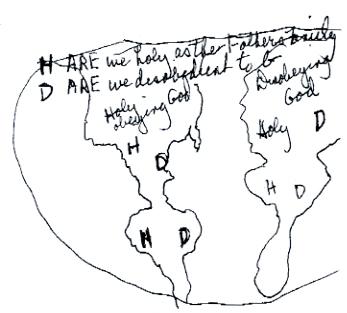 H ARE we holy as the Fathers
D ARE we disobedient to be
Holy
obeying God
Disobeying
God
H
D
Holy D
H D
H D